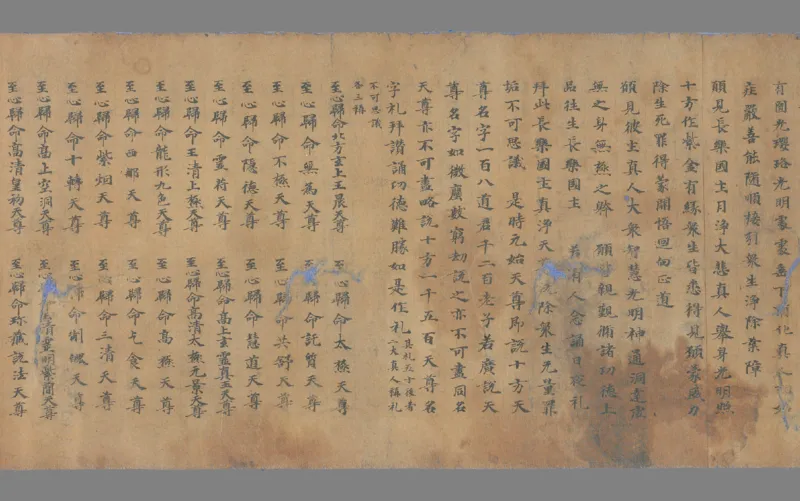 圓光瓔珞光明
莊嚴善能隨順接引衆生淨除業障
願見長樂國土月淨大慈真人舉身光明照
十方作紫金有緣衆生皆悉得見頒蒙威力
除生死罪得蒙開悟迴向正道
願見彼土真人大衆智慧光明神通洞達虛
無之身無爲之體 願皆親覲備諸功德上
品往生長樂國土 若有人念誦日夜礼
拜此長樂國土真淨天 除衆生无量罪
垢不可思議 是時元始天尊即説十方天
尊名字一百八道君千二百老子若廣説天
尊名字如微塵數窮劫説之亦不可盡同名
天尊亦不可盡略説十方一千五百天尊名
字礼拜讃誦功德難勝如是作礼
不可思議
各三稱
至心歸命北方玄上玉晨天尊 至心歸命太極天尊
至心歸命無爲天尊 至心歸命託質天尊
至心歸命不極天尊 至心歸命共舒天尊
至心歸命隱德天尊 至心歸命慧道天尊
至心歸命靈符天尊 至心歸命高上玄靈真王天尊
至心歸命玉清上極天尊 至心歸命高清太極元景天尊
至心歸命龍形九色天尊 至心歸命高極天尊
至心歸命西那天尊 至心歸命元食天尊
至心歸命紫烟天尊 至心歸命三清天尊
至心歸命十轉天尊 至心歸命制機天尊
至心歸命高上空洞天尊 至心 清靈明紫蘭天尊
至心歸命高清皇初天尊 至心歸命珎藏説法天尊